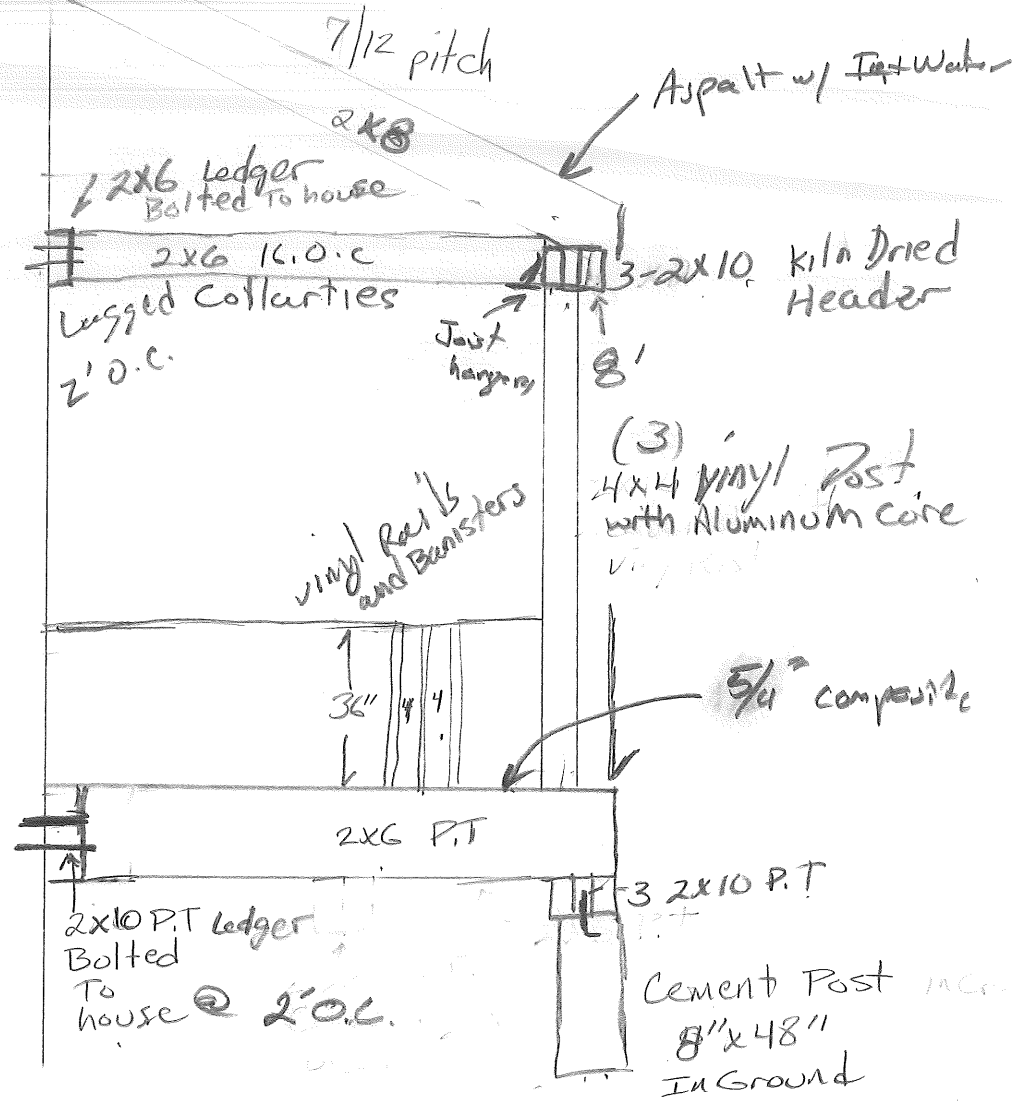 7/12 pitch
Aspalt w/ Water
2x8
2x6 Ledger
Bolted To house
2x6 16.O.C
3-2x10 Kiln Dried
Header
Lugged Collarties
2' O.C.
Joist
hangers
8'
(3)
4x4 vinyl Post
with Aluminum Core
vinyl Rails
and Banisters
36"
4 4
5/4" composite
2x6 P.T
3 2x10 P.T
2x10 P.T Ledger
Bolted
To
house @ 2' O.C.
Cement Post
8"x48"
In Ground